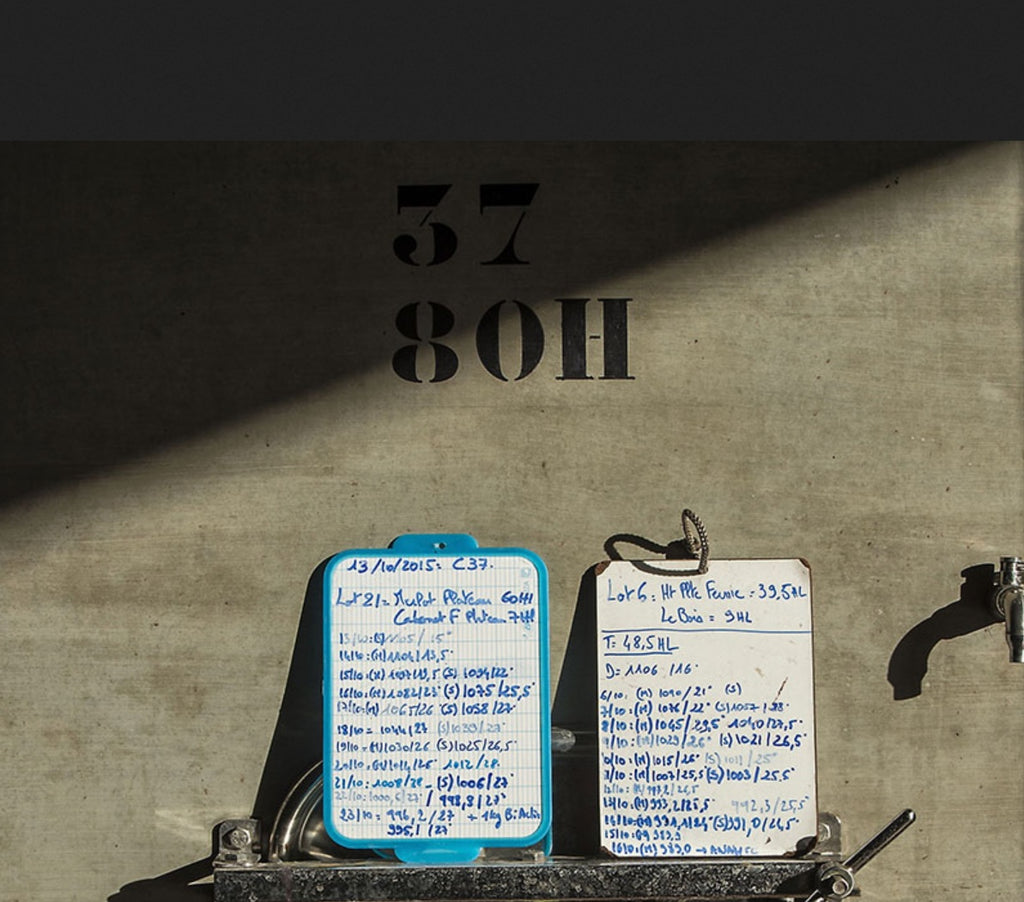 37
80H
13/10/2015: C37.
Lot 21 = Merlot Plateau 60Hl
Cabernet F Plateau 7Hl
13/10:(S)1105/15°
14/10:(M)1104/13,5°
15/10:(M)1097/19,5 (S) 1094/22°
16/10:(M)1082/23° (S)1075/25,5°
17/10:(M)1065/26 (S)1058/27°
18/10= 1044/27 (S)1039/27°
19/10=(M)1030/26 (S)1025/26,5°
20/10=(M)1014/26° 1012/28.
21/10: 1008/28 - (S)1006/27°
22/10:1000,6/27° / 998,8/27°
23/10= 996,2/27 + 1kg Bi Activ
995,1/27°
Lot 6: Ht Plte = 39,5HL
Le Bois = 9HL
T= 48,5HL
D= 1106/16°
6/10: (M) 1090/21° (S)
7/10: (M) 1076/22° (S)1057/28°
8/10:(M)1045/29,5° 1040/27,5°
9/10:(M)1029/26° (S)1021/26,5°
10/10:(M)1015/26° (S)1011/25°
11/10:(M)1007/25,5°(S)1003/25,5°
12/10:(M)997,2/26,5°
13/10:(M)993,2/25,5° 992,3/25,5°
14/10:(M)991,1/24°(S)991,0/24,5°
15/10:(M)989,9
16/10:(M)989,0 → ANALYSE